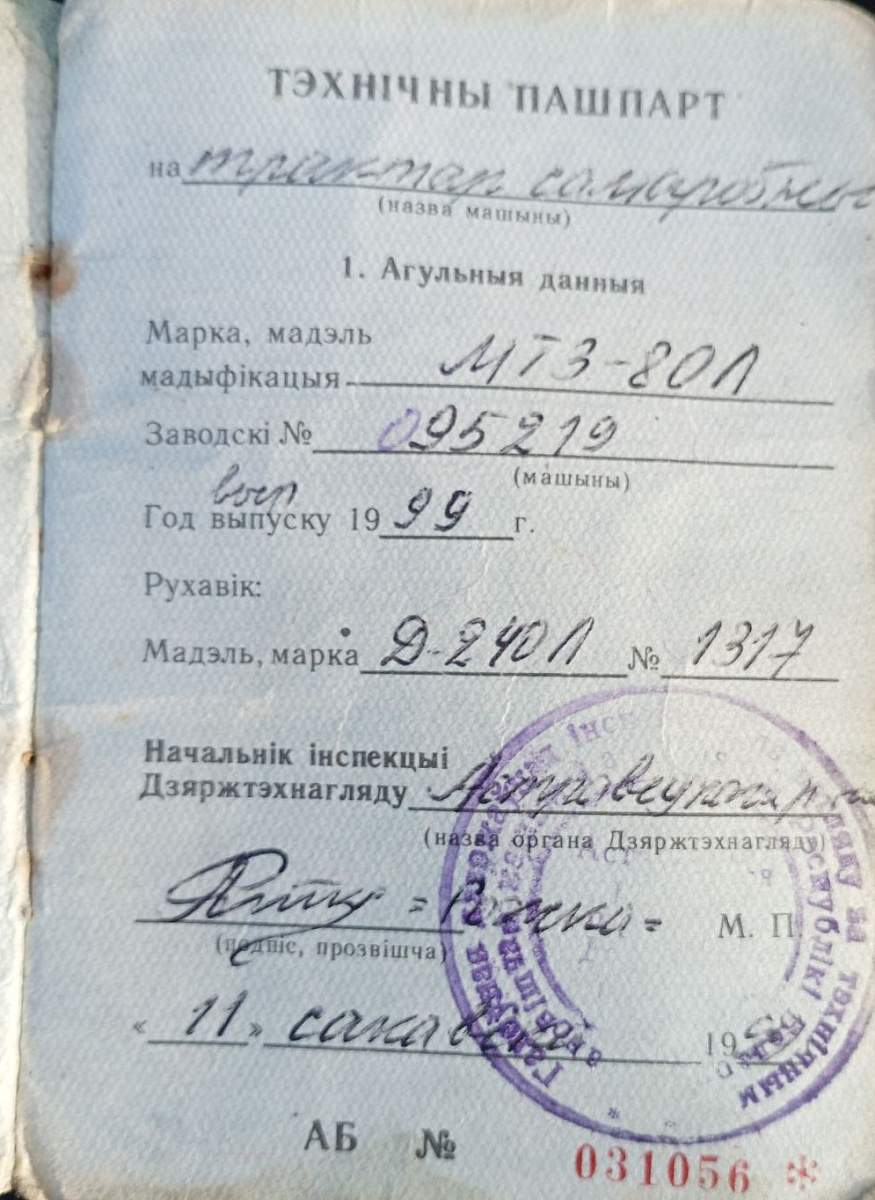 ТЭХНІЧНЫ ПАШПАРТ
на трактар самаробны
(назва машыны)
1. Агульныя данныя
Марка, мадэль
мадыфікацыя МТЗ-80Л
Заводскі № 095219
(машыны)
Год выпуску 1999 г.
Рухавік:
Мадэль, марка Д-240Л № 1317
Начальнік інспекцыі
Дзяржтэхнагляду Астравецкага
(назва органа Дзяржтэхнагляду)
М. П.
(подпіс, прозвішча)
« 11 » сакавіка 19
АБ № 031056 *